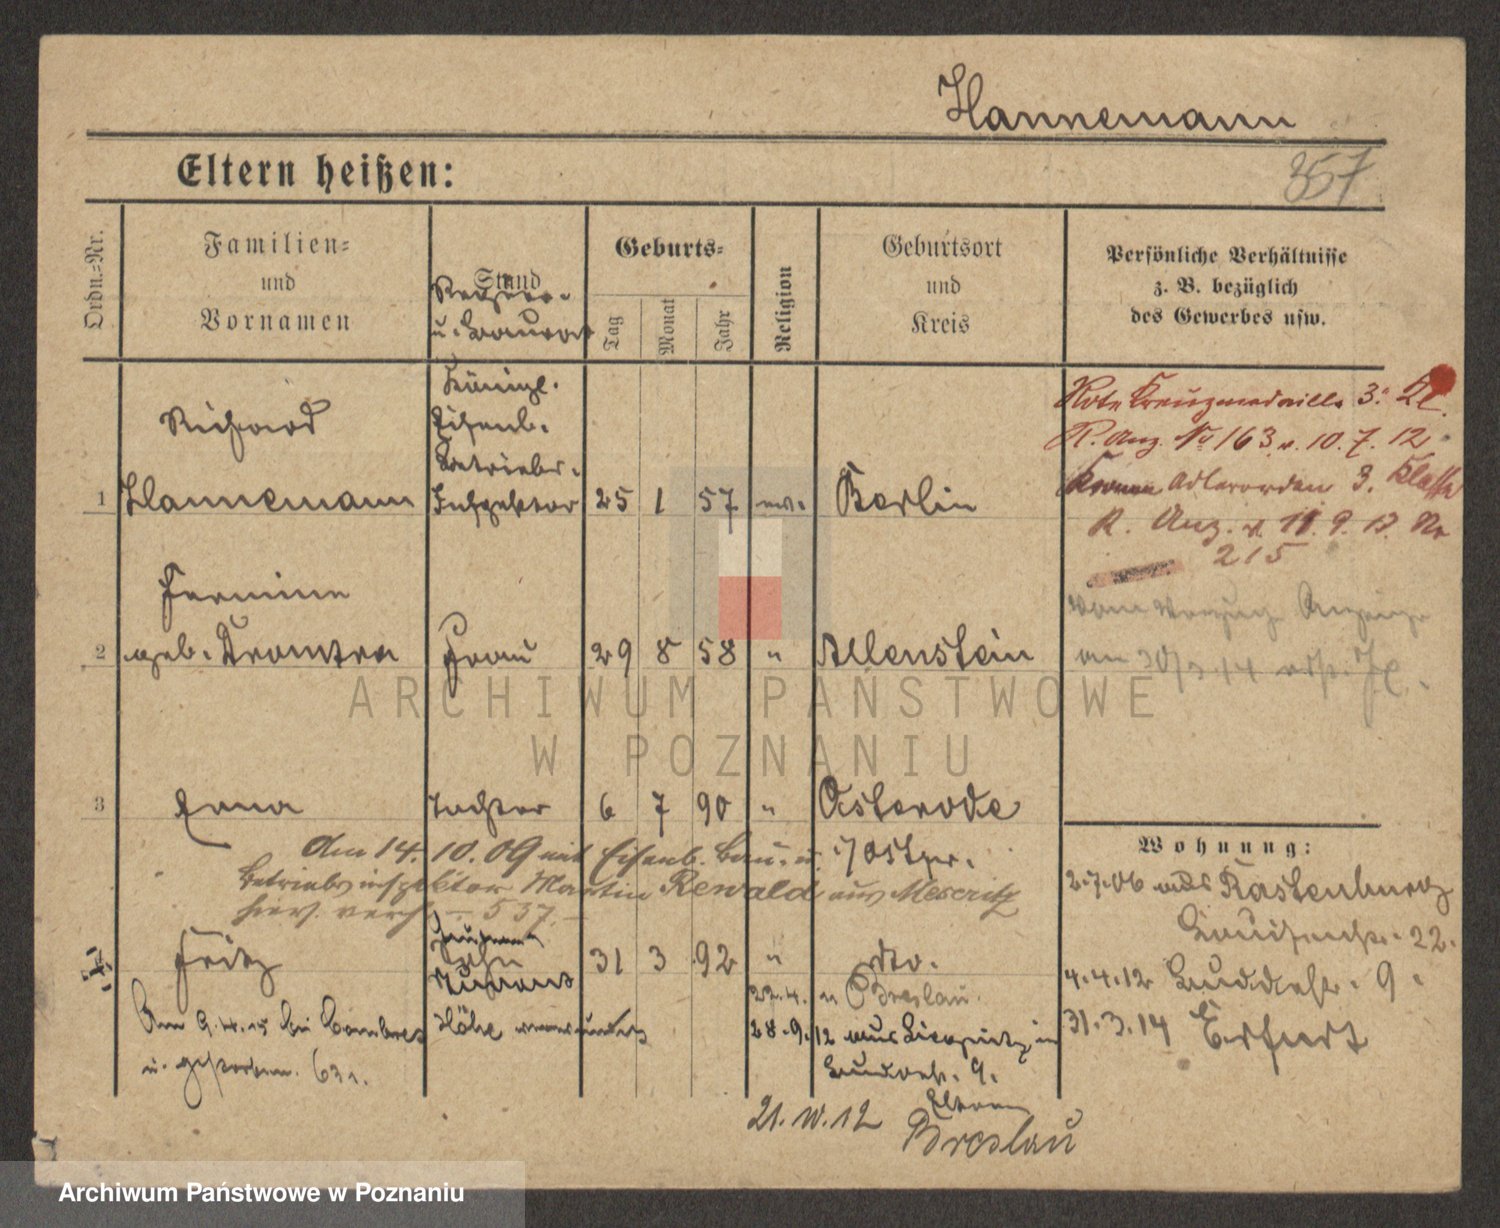 Hannemann
Eltern heißen:
357
Ordn.-Nr.
Familien-
und
Vornamen
Stand
Geburts-
Tag
Monat
Jahr
Religion
Geburtsort
und
Kreis
Persönliche Verhältnisse
z. B. bezüglich
des Gewerbes usw.
u. Baurat
Richard
Königl.
Eisenb.
Betriebs-
1 Hannemann Inspektor 25 1 57 ev. Berlin
Rote Kreuzmedaille 3. Kl.
R. Anz. No 163 v. 10.7.12
Kronen Adlerorden 3. Klasse
R. Anz. v. 11.9.13 No
215
2 geb. Frau 29 8 58 " Allenstein
3 Erna Tochter 6 7 90 " Osterode
Am 14.10.09 mit Eisenb. Bau- u. /Ostpr.
Betriebsinspektor Martin Rewald aus Meseritz
hier verh. – 537. –
Fritz Sohn 31 3 92 " dto.
22.4. n Breslau.
Am 9.4.15 bei Combres Höhe verwundet
u. gestorben.
28.9.12 aus
9.
21.10.12 Eltern
Breslau
Wohnung:
2.7.06 aus Rastenburg
22.
4.4.12 9.
31.3.14 Erfurt
ARCHIWUM PAŃSTWOWE
W POZNANIU
Archiwum Państwowe w Poznaniu